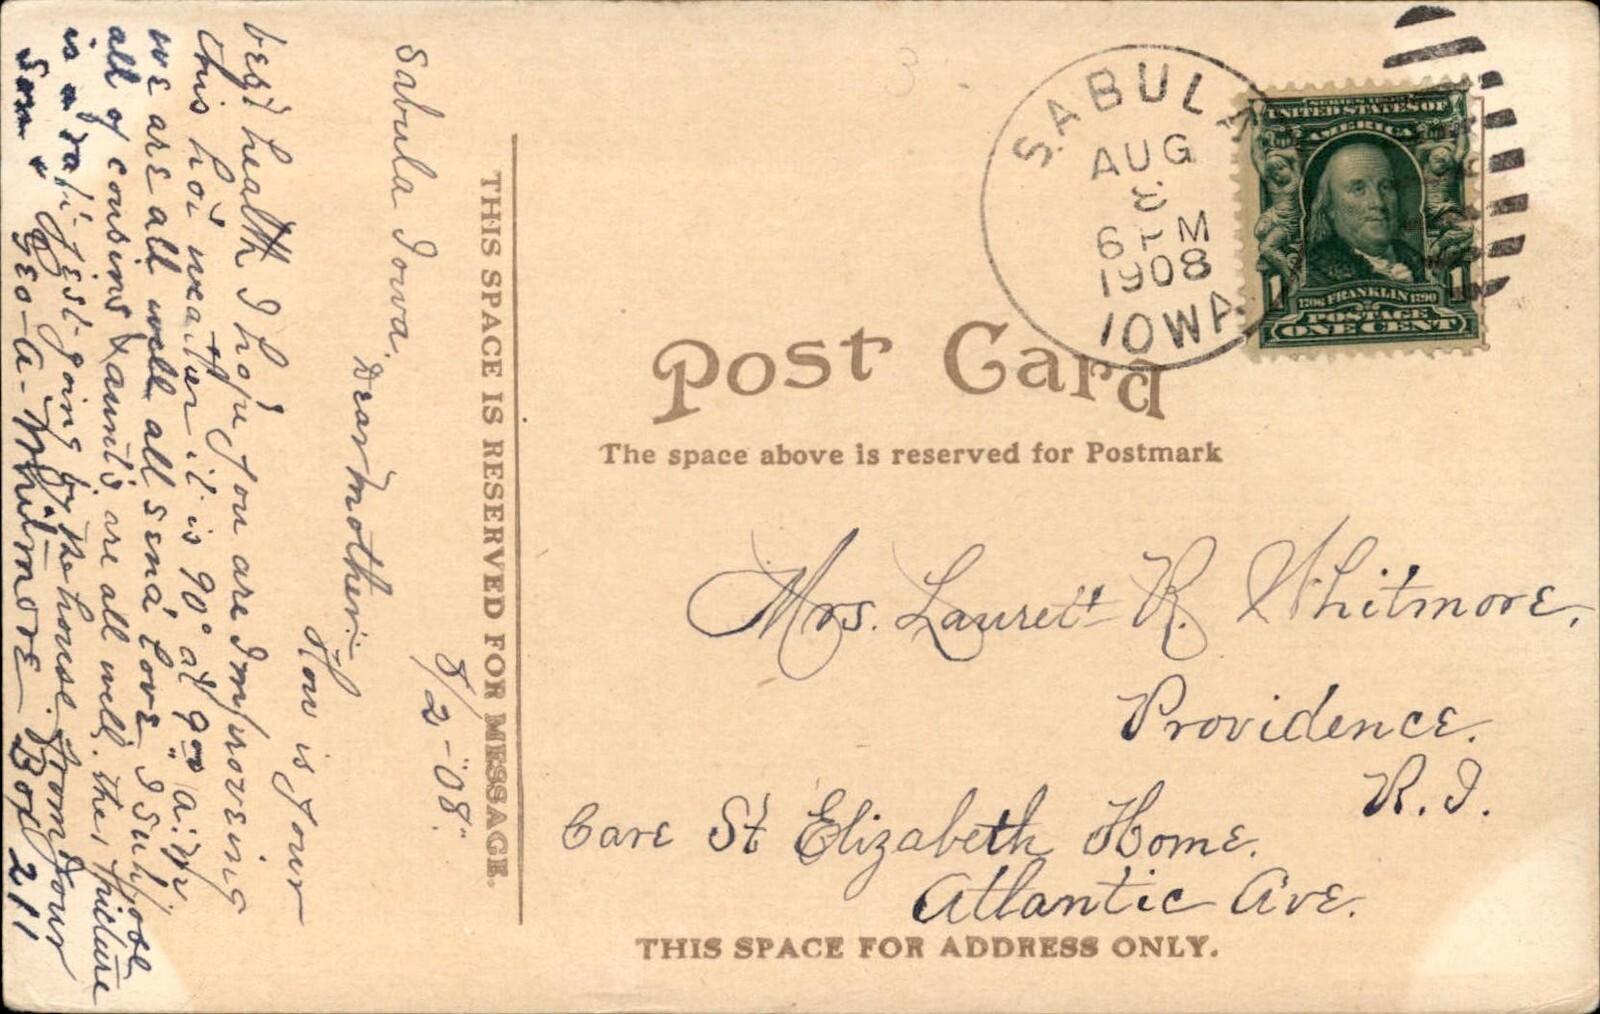 Sabula Iowa.
8/2-"08."
Dear mother:-
How is your
best health I hope you are Improving
this hot weather it is 90° at 9 a.m.
we are all well all send love I Suppose
all of cousins & aunts are all well. the picture
is a raft just going by the house. from your
Son " Geo-A-Whitmore Box 211
THIS SPACE IS RESERVED FOR MESSAGE.
SABULA
AUG
6 PM
1908
IOWA
SERIES 1902
UNITED STATES OF
AMERICA
1706 FRANKLIN 1790
1 1
POSTAGE
ONE CENT
Post Card
The space above is reserved for Postmark
Mrs. Laurett R. Whitmore.
Providence.
R.I.
Care St Elizabeth Home.
Atlantic Ave.
THIS SPACE FOR ADDRESS ONLY.